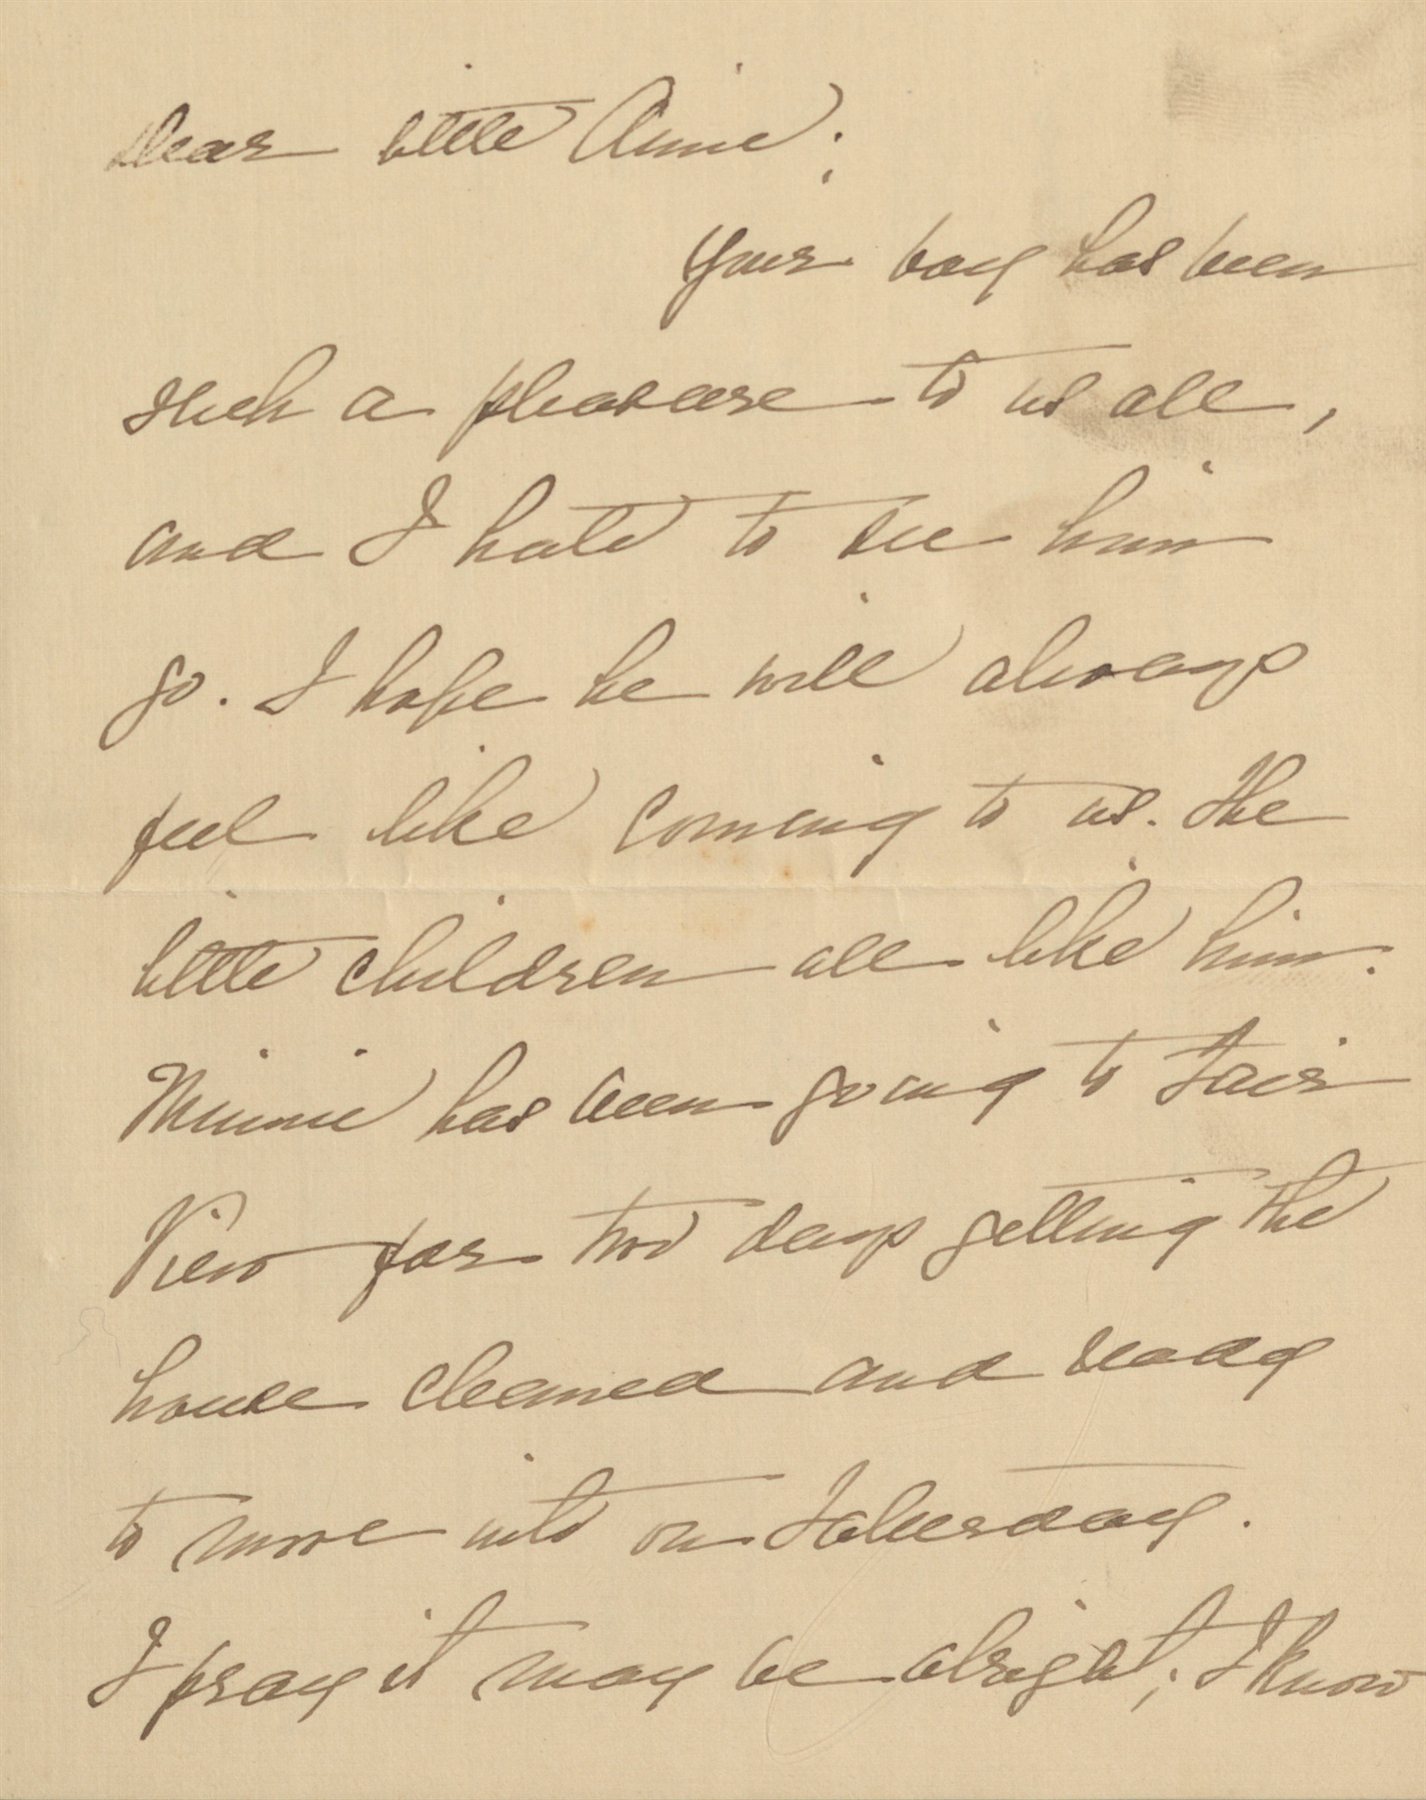 Dear little Annie;
Your boy has been
such a pleasure to us all,
and I hate to see him
go. I hope he will always
feel like coming to us. The
little children all like him.
Minnie has been going to Fair
View for two days getting the
house cleaned and ready
to move into on Saturday.
I pray it may be alright; I know